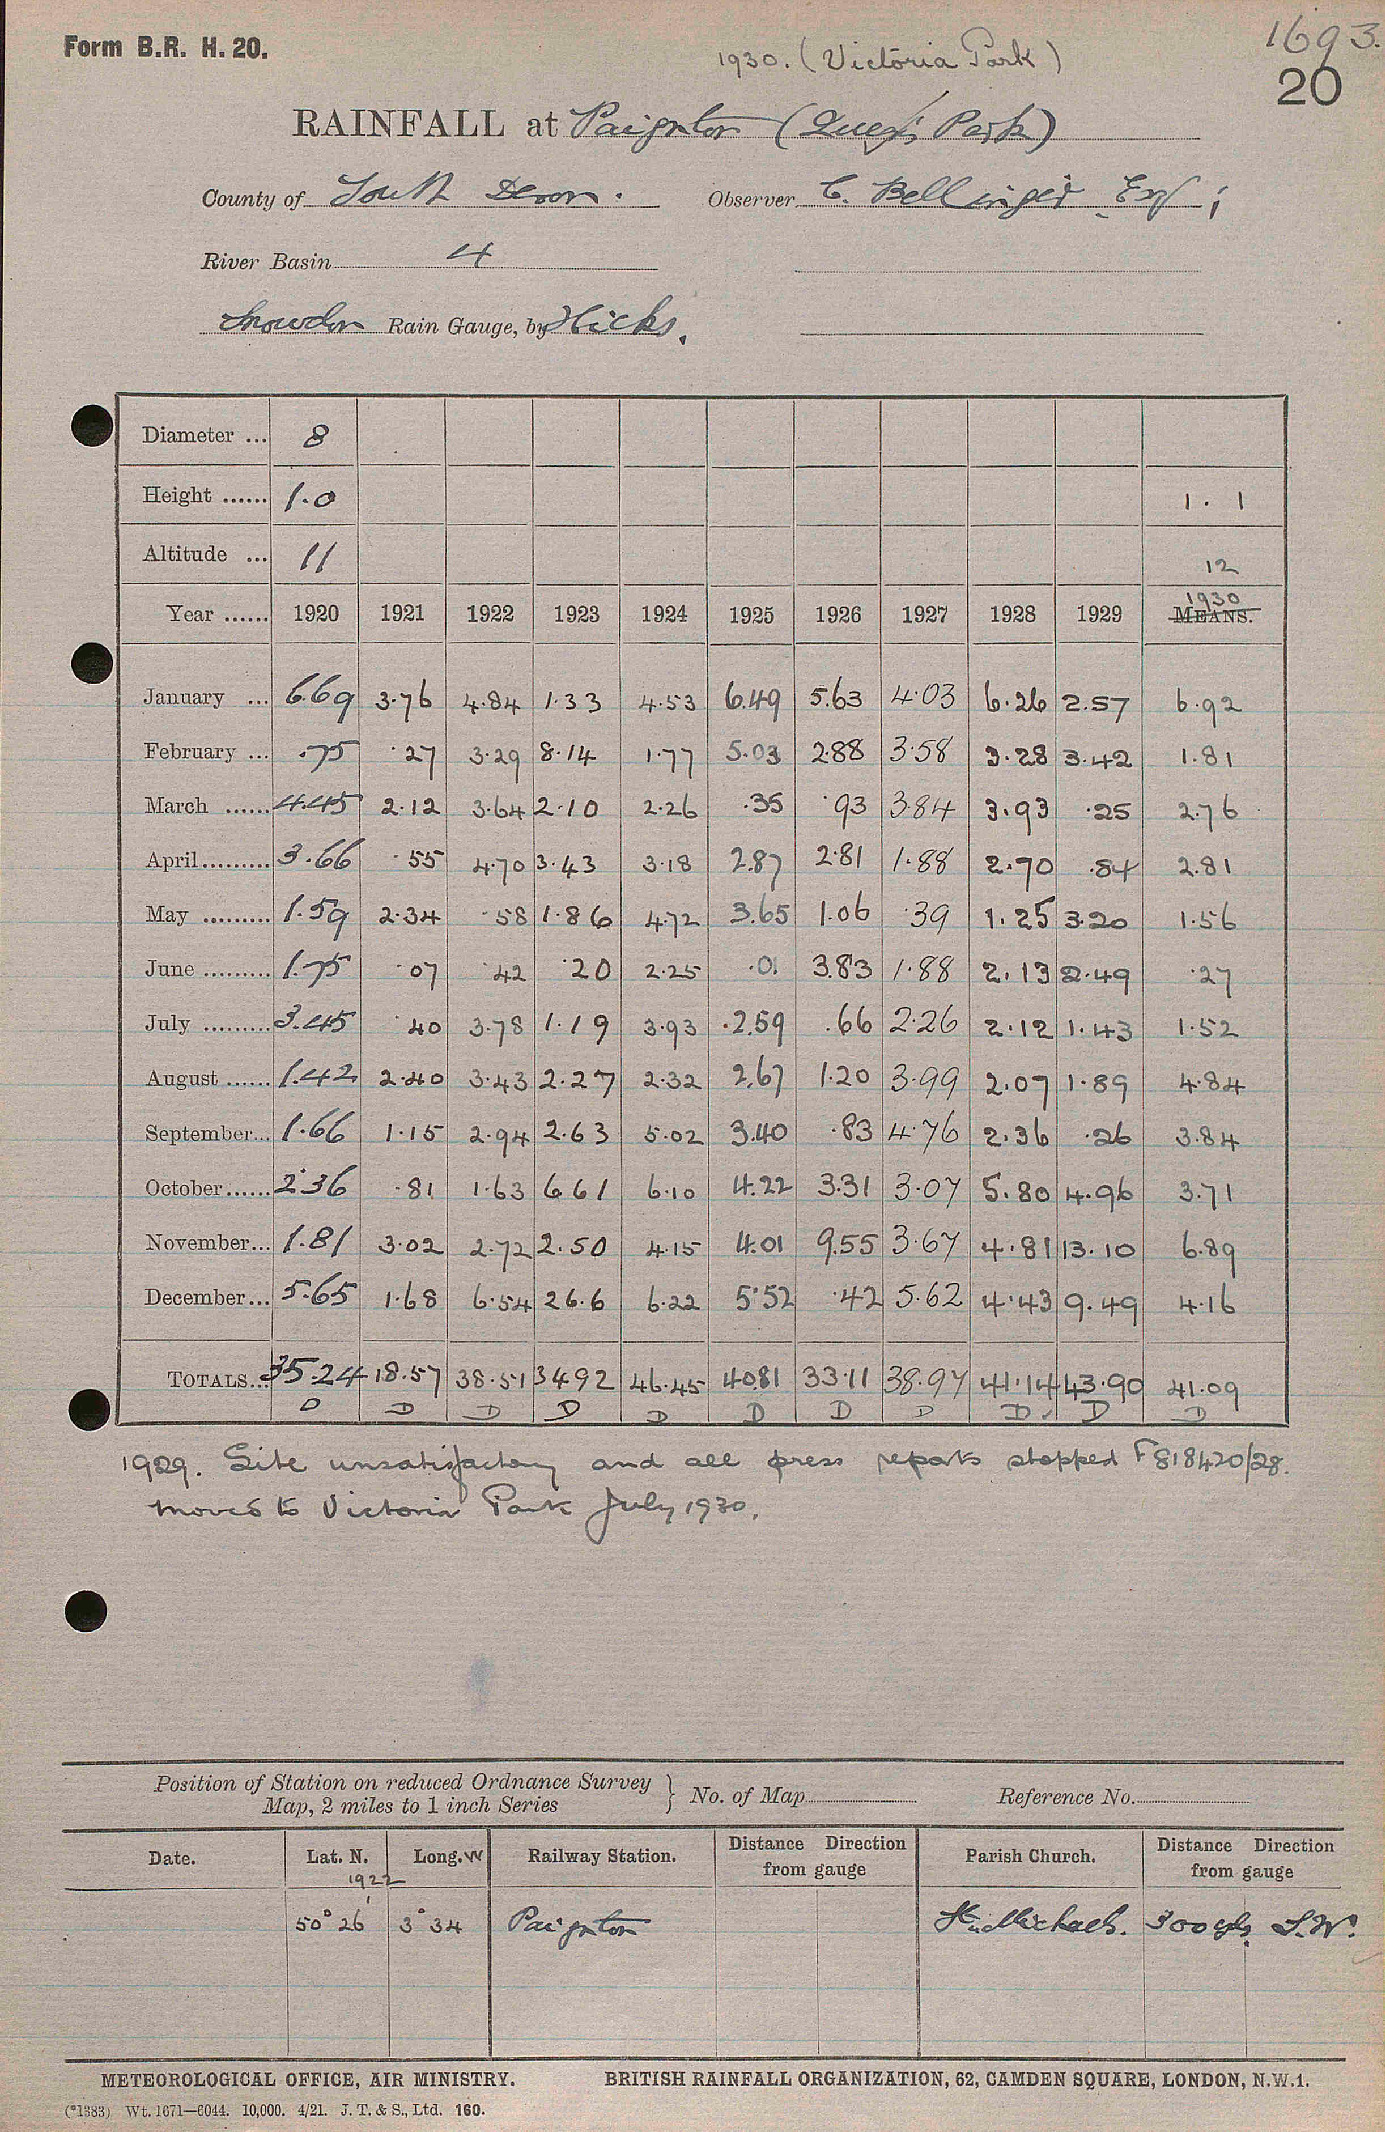 Form B.R. H. 20.
1930. (Victoria Park)
1693.
20
RAINFALL at Paignton (Queen's Park)
County of South Devon. Observer C. Bellinger Esq ;
River Basin 4
Snowdon Rain Gauge, by Hicks.
Diameter ... 8
Height ...... 1.0 1.1
Altitude ... 11 12
Year ...... 1920 1921 1922 1923 1924 1925 1926 1927 1928 1929 1930 MEANS.
January ... 6.69 3.76 4.84 1.33 4.53 6.49 5.63 4.03 6.26 2.57 6.92
February ... .75 .27 3.29 8.14 1.77 5.03 2.88 3.58 3.28 3.42 1.81
March ...... 4.45 2.12 3.64 2.10 2.26 .35 .93 3.84 3.93 .25 2.76
April......... 3.66 .55 4.70 3.43 3.18 2.87 2.81 1.88 2.70 .84 2.81
May ......... 1.59 2.34 .58 1.86 4.72 3.65 1.06 .39 1.25 3.20 1.56
June ......... 1.75 .07 .42 .20 2.25 .01 3.83 1.88 2.13 2.49 .27
July ......... 3.45 .40 3.78 1.19 3.93 .2.59 .66 2.26 2.12 1.43 1.52
August ...... 1.42 2.40 3.43 2.27 2.32 2.67 1.20 3.99 2.07 1.89 4.84
September... 1.66 1.15 2.94 2.63 5.02 3.40 .83 4.76 2.36 .26 3.84
October...... 2.36 .81 1.63 6.61 6.10 4.22 3.31 3.07 5.80 4.96 3.71
November... 1.81 3.02 2.72 2.50 4.15 4.01 9.55 3.67 4.81 13.10 6.89
December... 5.65 1.68 6.54 26.6 6.22 5.52 .42 5.62 4.43 9.49 4.16
TOTALS... 35.24 18.57 38.51 34.92 46.45 40.81 33.11 38.97 41.14 43.90 41.09
D D D D D D D D D D D
1929. Site unsatisfactory and all press reports stopped F818420/28.
moved to Victoria Park July 1930.
Position of Station on reduced Ordnance Survey
Map, 2 miles to 1 inch Series } No. of Map Reference No.
Date. Lat. N. Long. W Railway Station. Distance Direction from gauge Parish Church. Distance Direction from gauge
1922
50° 26' 3° 34 Paignton St. Michaels. 300 yds. S.W.
METEOROLOGICAL OFFICE, AIR MINISTRY. BRITISH RAINFALL ORGANIZATION, 62, CAMDEN SQUARE, LONDON, N.W.1.
(*1383) Wt. 1671—6044. 10,000. 4/21. J. T. & S., Ltd. 160.